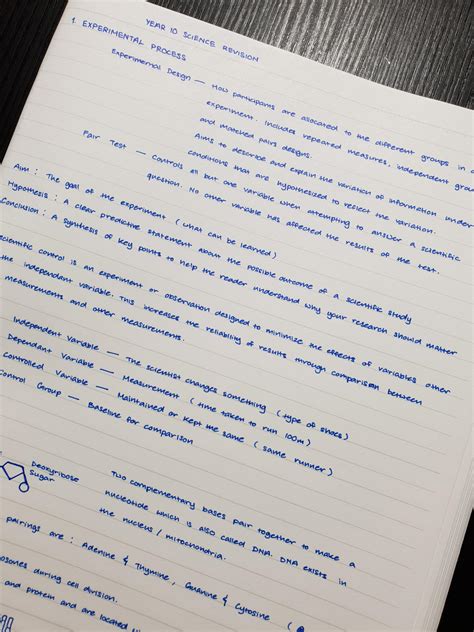 YEAR 10 SCIENCE REVISION
1. EXPERIMENTAL PROCESS
Experimental Design — How participants are allocated to the different groups in a
experiment. Includes repeated measures, independent grou
and matched pairs designs.
Aims to describe and explain the variation of information under
conditions that are hypothesized to reflect the variation.
Fair Test — Controls all but one variable when attempting to answer a scientific
question. No other variable has affected the results of the test.
Aim : The goal of the experiment (what can be learned)
Hypothesis : A clear predictive statement about the possible outcome of a scientific study
Conclusion : A synthesis of key points to help the reader understand why your research should matter
Scientific control is an experiment or observation designed to minimize the effects of variables other
the independant variable. This increases the reliability of results through comparison between
measurements and other measurements.
Independent Variable — The scientist changes something (type of shoes)
Dependant Variable — Measurement (time taken to run 100m)
Controlled Variable — Maintained or kept the same (same runner)
Control Group — Baseline for comparison
Deoxyribose
Sugar
Two complementary bases pair together to make a
nucleotide which is also called DNA. DNA exists in
the nucleus / mitochondria.
pairings are : Adenine & Thymine, Guanine & Cytosine (
osomes during cell division.
and protein and are located